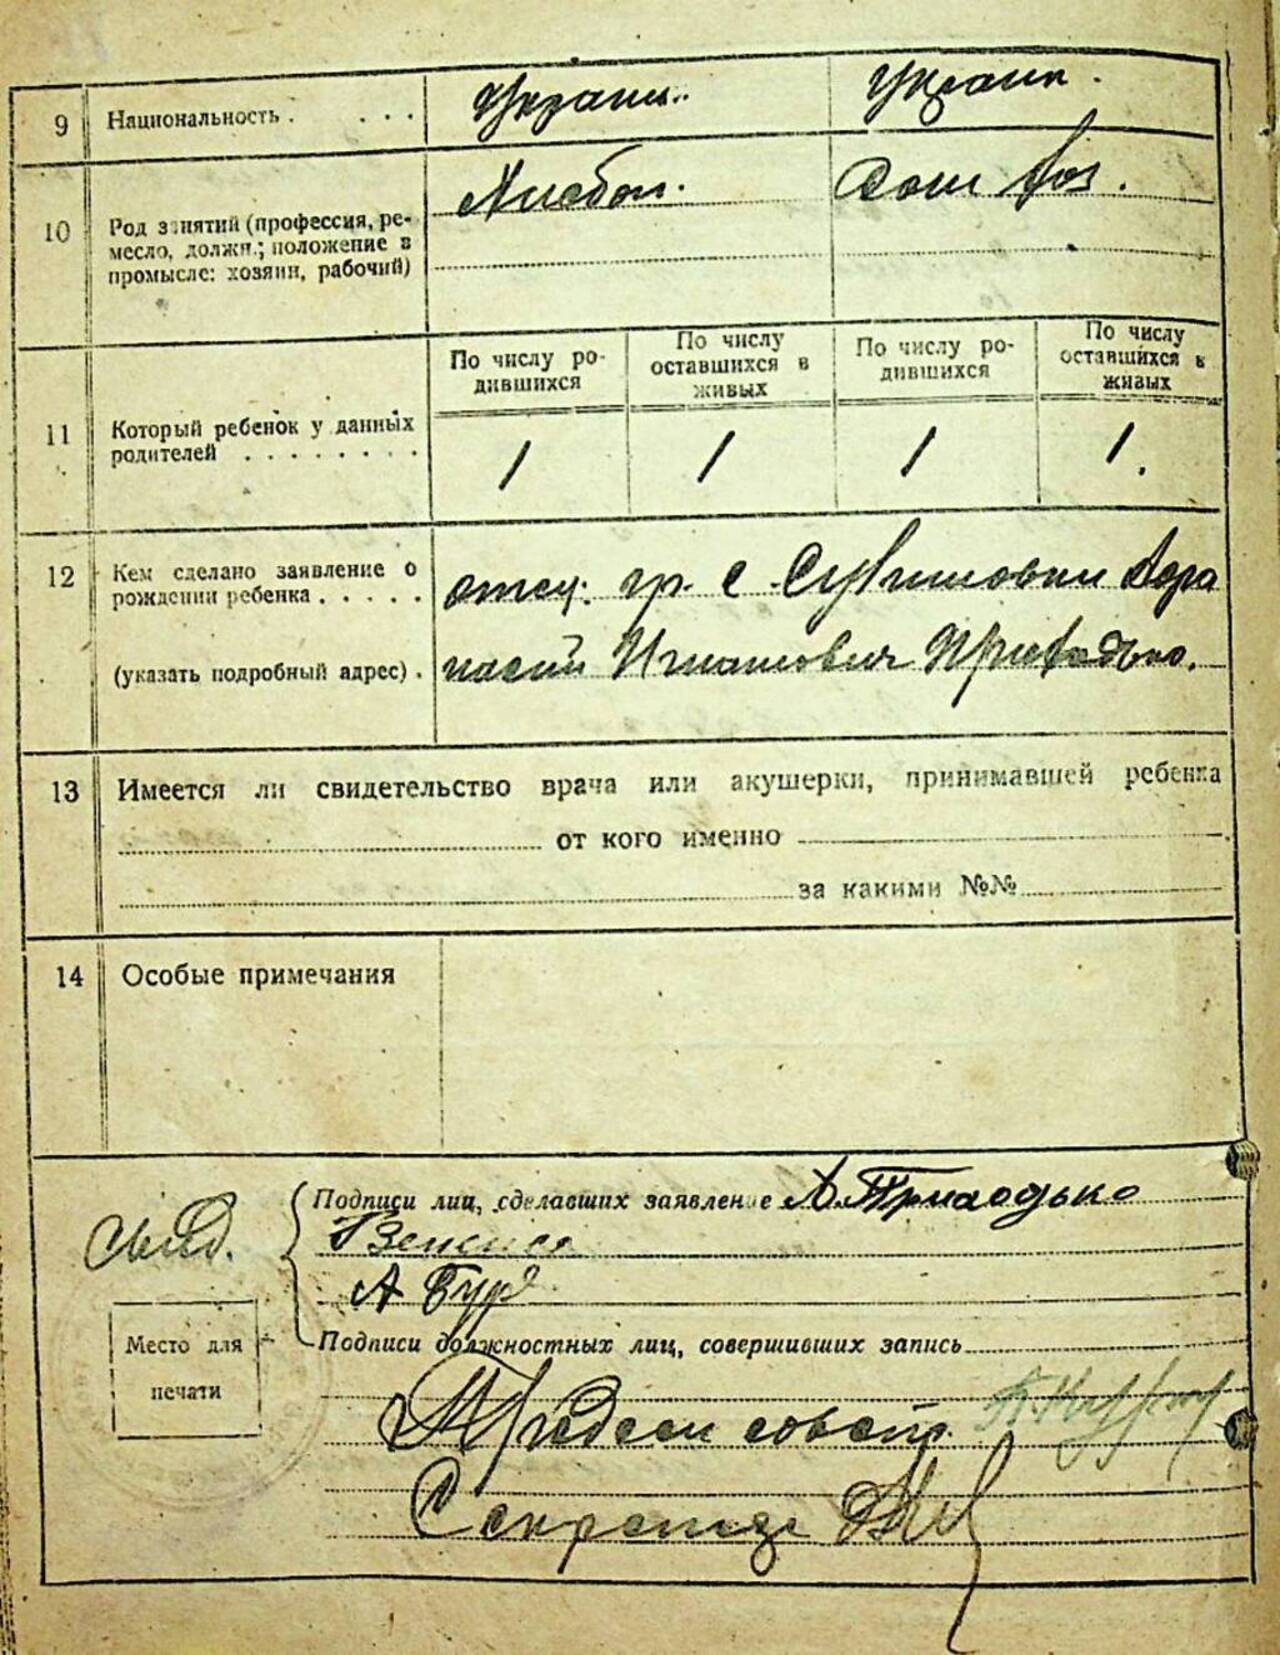 9 Национальность . . . . Украин. Украин.
10 Род занятий (профессия, ре-
месло, должн.; положение в
промысле: хозяин, рабочий)
Дом хоз.
11 Который ребенок у данных
родителей . . . . . . . .
По числу ро-
дившихся
По числу
оставшихся в
живых
По числу ро-
дившихся
По числу
оставшихся в
живых
1 1 1 1.
12 Кем сделано заявление о
рождении ребенка . . . . .
(указать подробный адрес) .
отец. гр. с.
Игнатович Приходько.
13 Имеется ли свидетельство врача или акушерки, принимавшей ребенка
от кого именно
за какими №№
14 Особые примечания
Подписи лиц, сделавших заявление А. Приходько
свид.
А Бур
Место для
печати
Подписи должностных лиц, совершивших запись
Предсем совета
Секретар